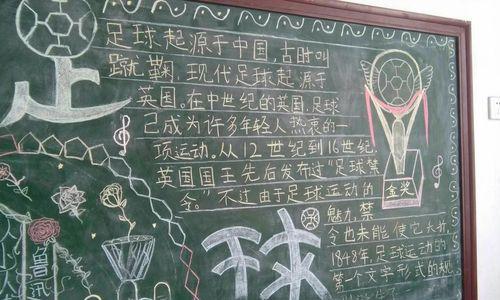 足
足球起源于中国,古时叫
蹴鞠,现代足球起源于
英国。在中世纪的英国,足球
已成为许多年轻人热衷的一
项运动。从12世纪到16世纪,
英国国王先后发布过“足球禁
令。”不过由于足球运动的
魅力,禁
令也未能使它夭折,
1848年,足球运动的
第一个文字形式的规
球
金奖